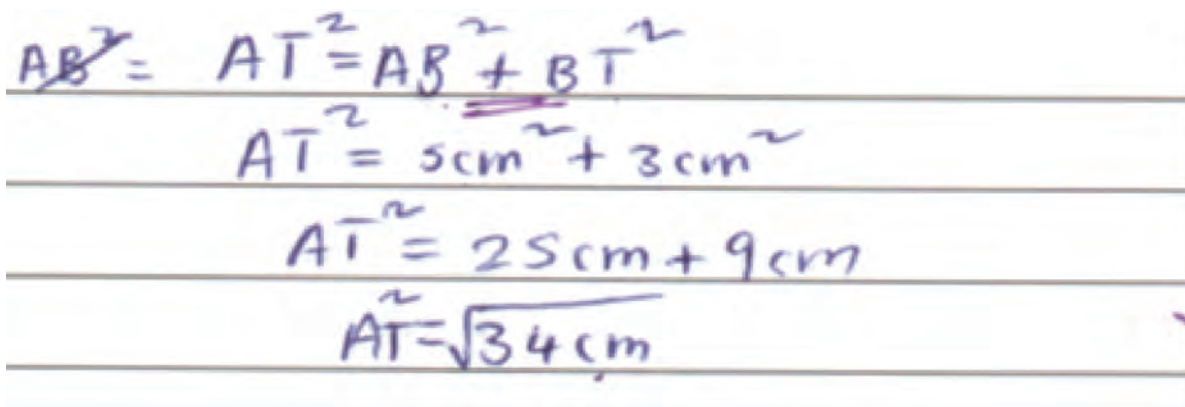 AB² = AT² = AB² + BT²
AT² = 5cm² + 3cm²
AT² = 25cm + 9cm
AT² = √34cm